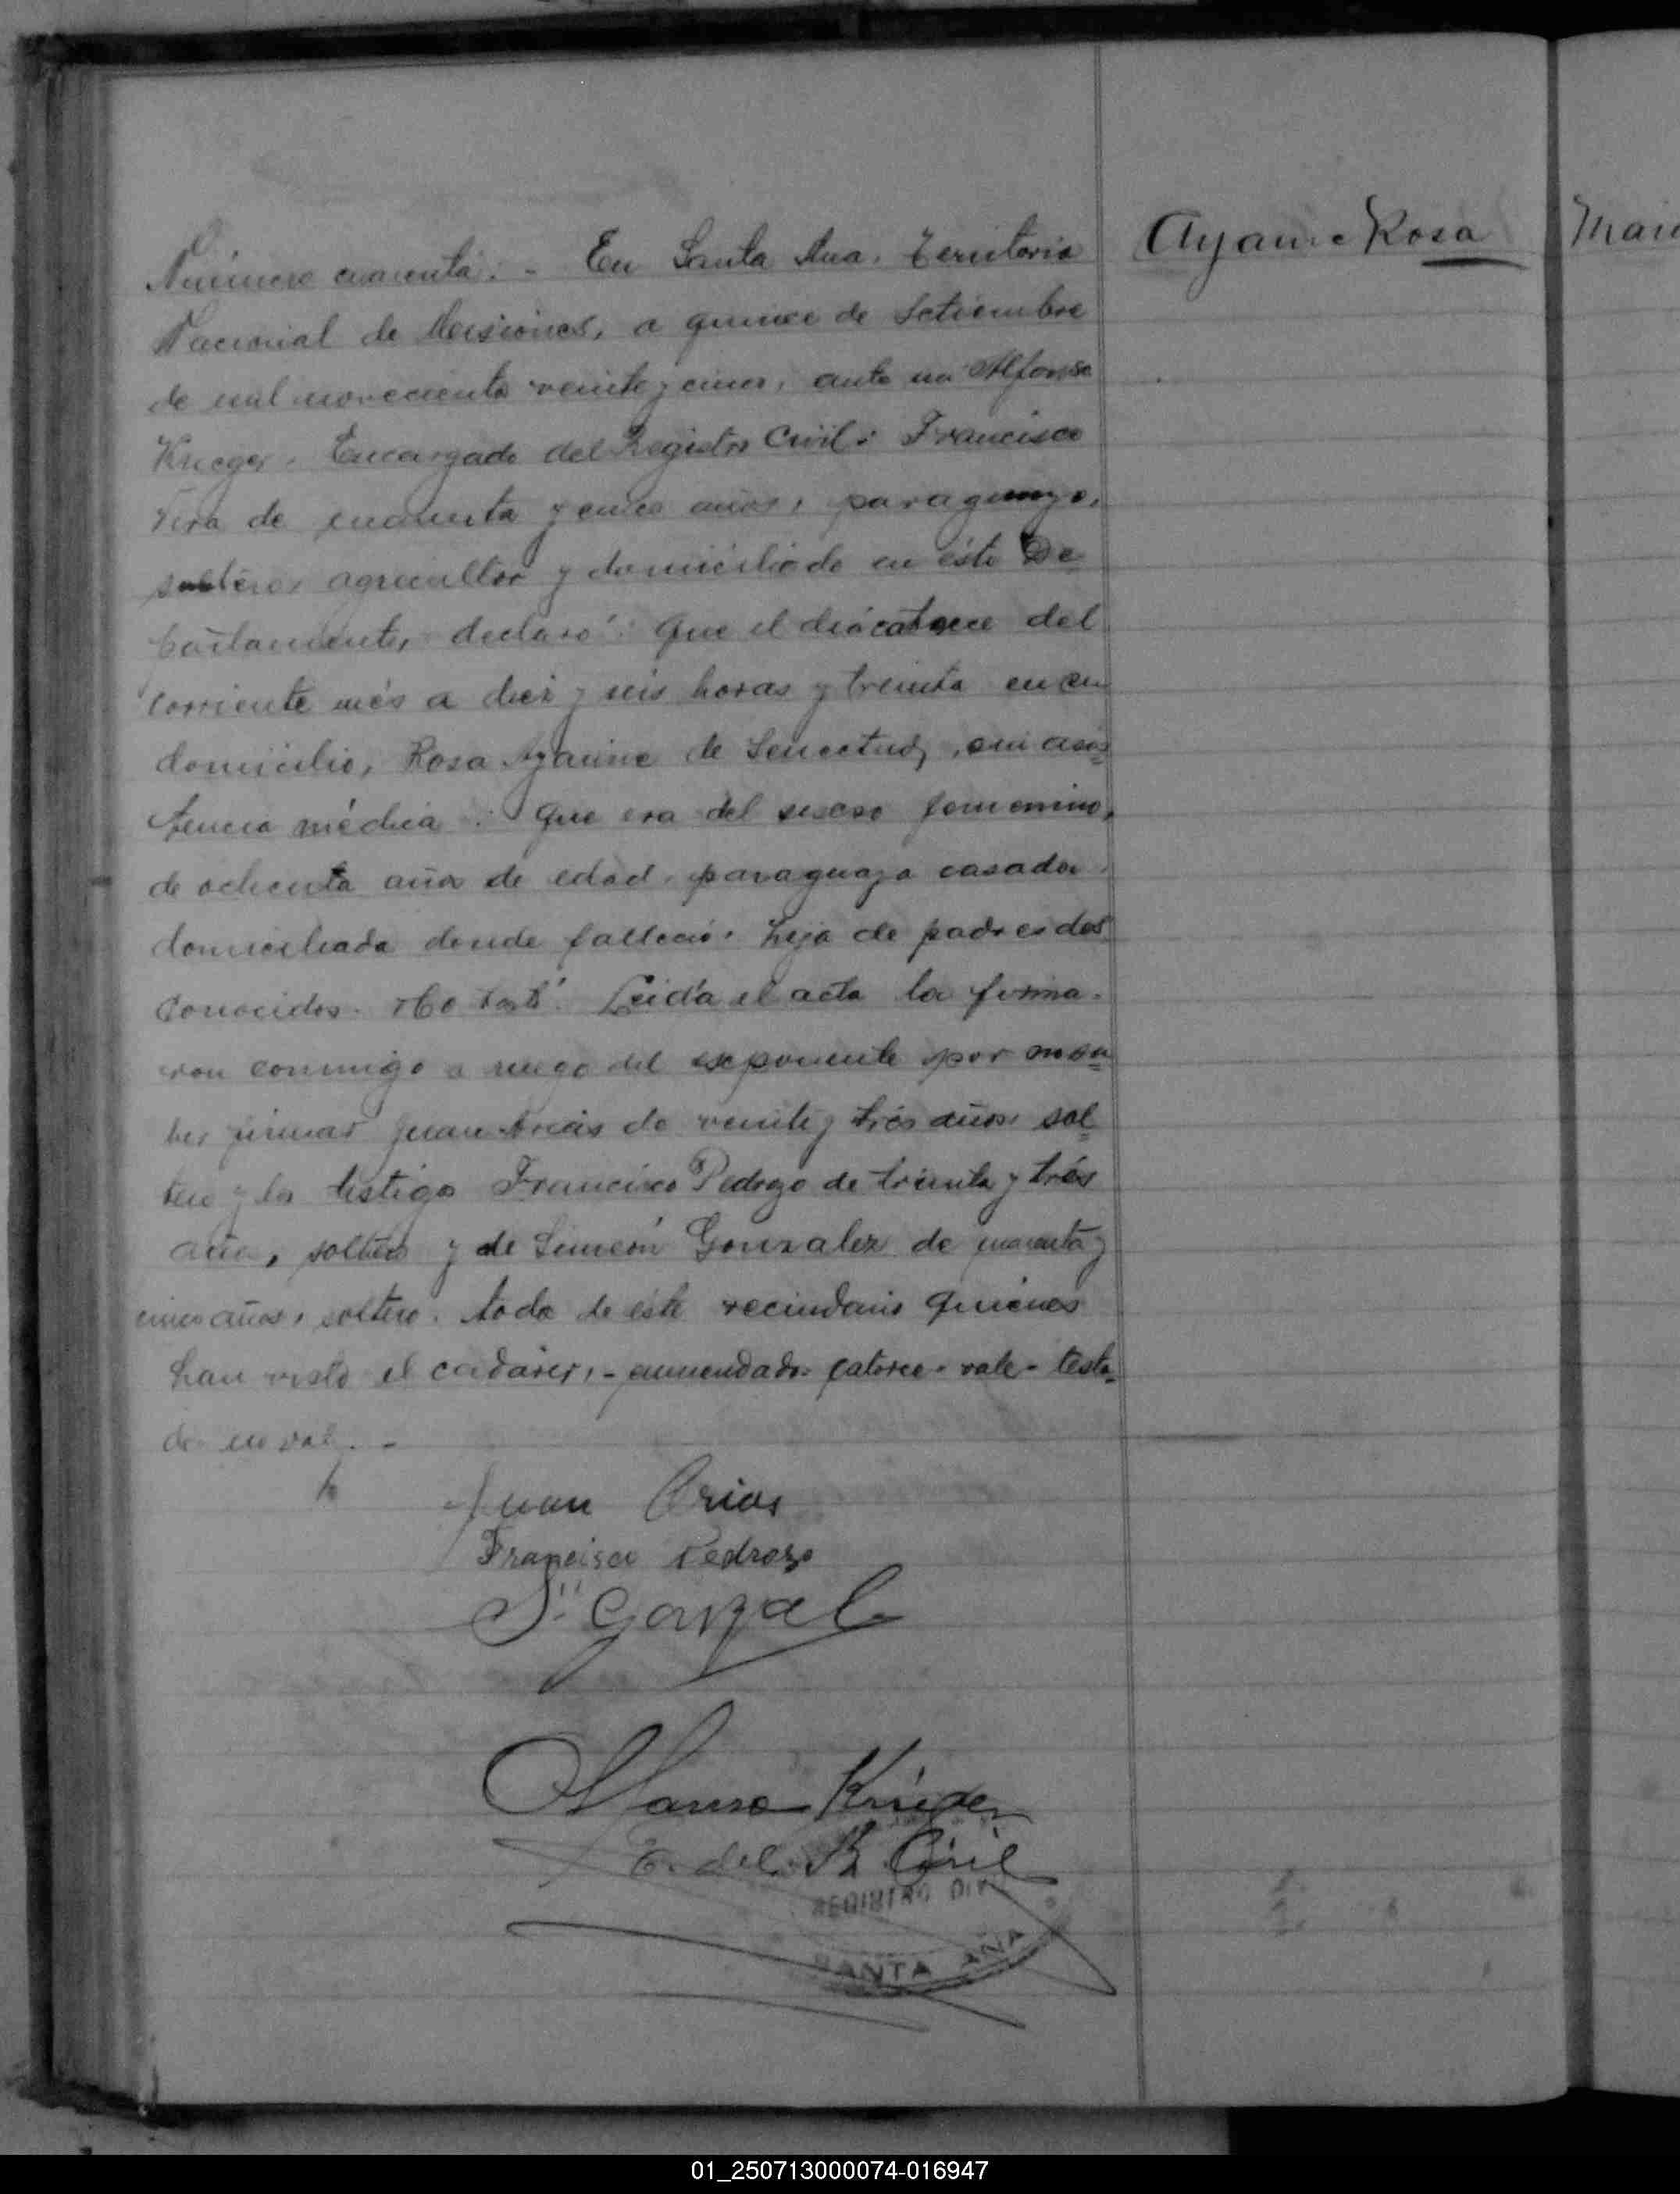 Número cuarenta. - En Santa Ana, Territorio
Nacional de Misiones, a quince de Setiembre
de mil novecientos veinte y cinco, ante mi Alfonso
Krieger, Encargado del Registro Civil: Francisco
Vera de cuarenta y cinco años, paraguayo,
soltero, agricultor y domiciliado en éste De
partamento, declaró: Que el dia catorce del
corriente més a diez y seis horas y treinta en su
domicilio, Rosa Ayanne de Senectud, sin asis
tencia médica: Que era del sexso femenino,
de ochenta años de edad, paraguaya casada
domiciliada donde falleció, hija de padres des
conocidos. No testó. Leida el acta la firma-
ron conmigo a ruego del exponente por no sa
ber firmar Juan Arias de veinte y trés años, sol
tero y los testigos Francisco Pedrozo de treinta y trés
años, soltero y de Simeón Gonzalez de cuarenta y
cinco años, soltero, todos de éste vecindario quiénes
han visto el cadáver, - enmendado - catorce - vale - testa
do no vale. -
Juan Arias
Francisco Pedrozo
S. Gonzal
Alfonso Krieger
E. del R. Civil
REGISTRO CIVIL
SANTA ANA
Ayanne Rosa
01_250713000074-016947